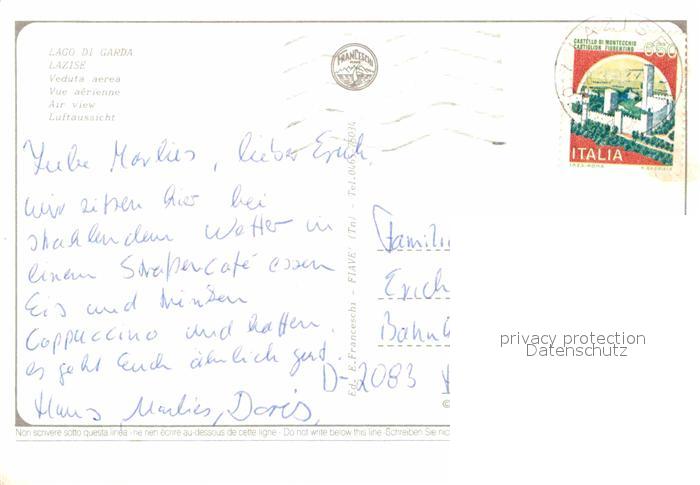 LAGO DI GARDA
LAZISE
Veduta aerea
Vue aérienne
Air view
Luftaussicht
FRANCESCHI
CASTELLO DI MONTECCHIO
CASTIGLION FIORENTINO
650
ITALIA
Liebe Marlies, lieber Erich,
wir sitzen hier bei
strahlendem Wetter in
einem Straßencafé essen
Eis und trinken
Cappuccino und hoffen,
es geht Euch ähnlich gut.
Hans Marlies, Doris,
Ed. E. Franceschi - FIAVE' (Tn) - Tel.
Famili
Erich
Bahn
D-2083
privacy protection
Datenschutz
©
Non scrivere sotto questa linea - ne rien écrire au-dessous de cette ligne - Do not write below this line - Schreiben Sie nic